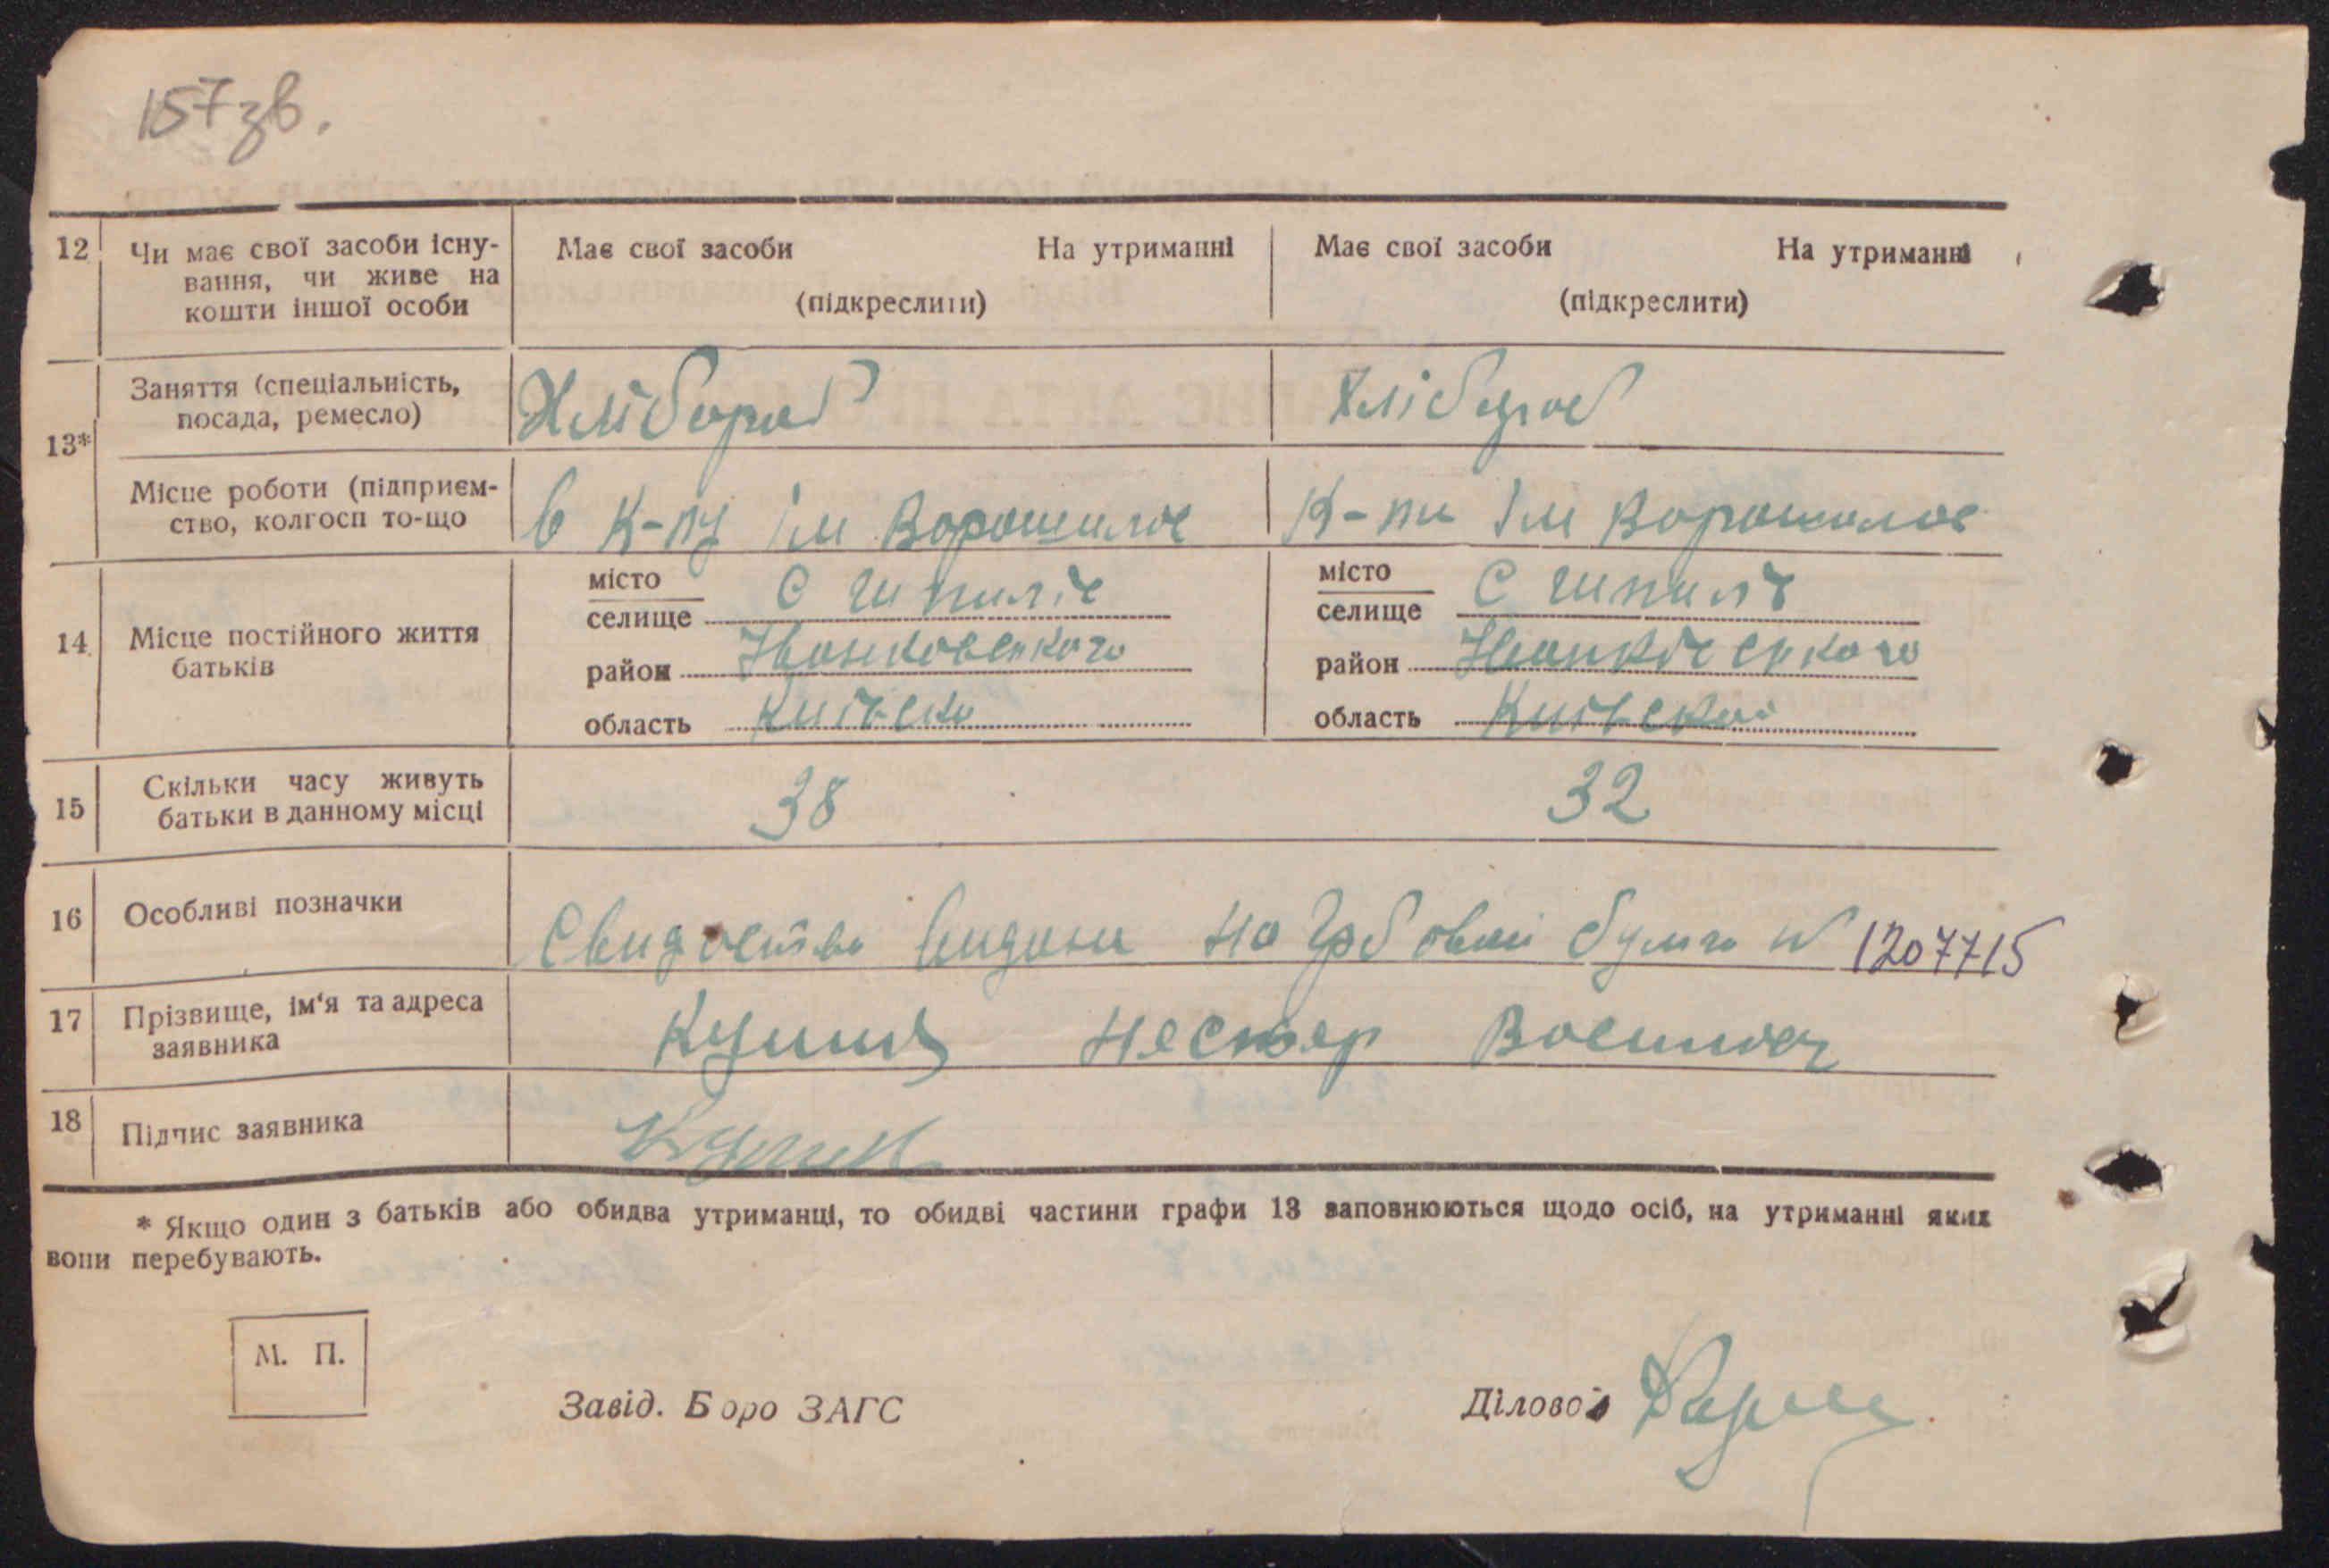 157 зв.
12 Чи має свої засоби існу- Має свої засоби На утриманні Має свої засоби На утриманні
вання, чи живе на
кошти іншої особи (підкреслити) (підкреслити)
13* Заняття (спеціальність, Хлібороб Хлібороб
посада, ремесло)
Місце роботи (підприєм- в К-пу ім Ворошилов К-пи Ім Ворошилов
ство, колгосп то-що
14 Місце постійного життя місто місто
батьків селище С селище С
район район
область Київсько область Київської
15 Скільки часу живуть 38 32
батьки в данному місці
16 Особливі позначки Свидоство видана на бумаги № 1207715
17 Прізвище, ім'я та адреса Нестер
заявника
18 Підпис заявника
* Якщо один з батьків або обидва утриманці, то обидві частини графи 13 заповнюються щодо осіб, на утриманні яких
вони перебувають.
М. П.
Завід. Бюро ЗАГС Діловод